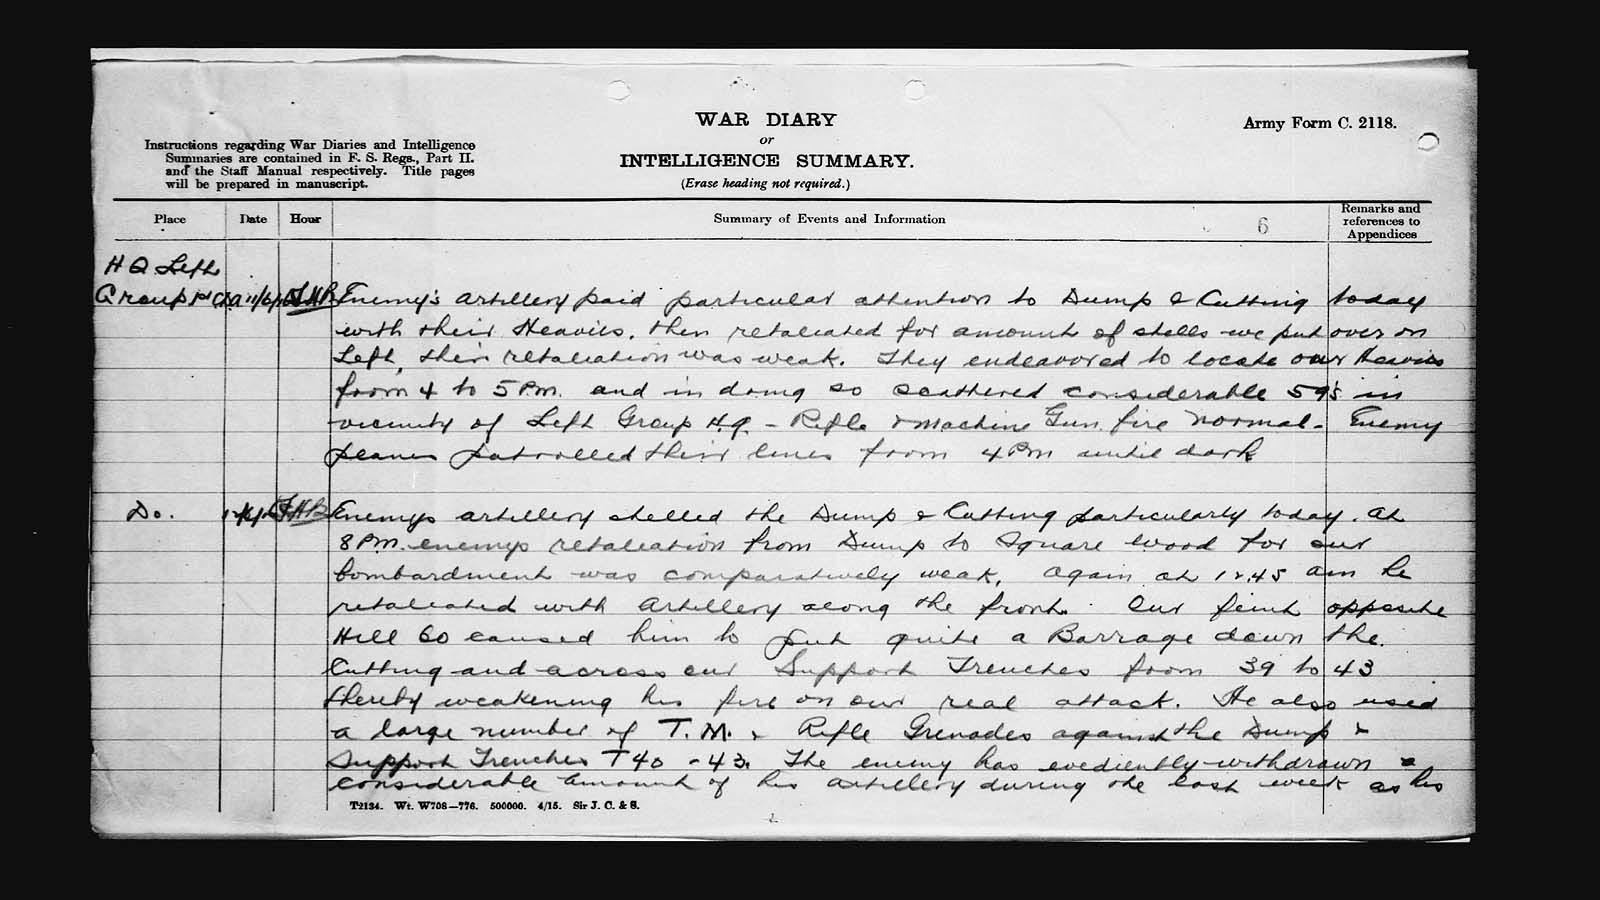 WAR DIARY
or
INTELLIGENCE SUMMARY.
(Erase heading not required.)
Army Form C. 2118.
Instructions regarding War Diaries and Intelligence
Summaries are contained in F. S. Regs., Part II.
and the Staff Manual respectively. Title pages
will be prepared in manuscript.
Place Date Hour Summary of Events and Information 6 Remarks and references to Appendices
H Q Left
Group Enemy's artillery paid particular attention to Dump & Cutting today
with their Heavies, then retaliated for amount of shells we put over on
Left, their retaliation was weak. They endeavored to locate our Heavies
from 4 to 5 P.M. and in doing so scattered considerable 59's in
vicinity of Left Group H.Q. - Rifle & Machine Gun fire normal - Enemy
planes patrolled their lines from 4 PM until dark
Do. Enemys artillery shelled the Dump & Cutting particularly today. At
8 P.M. enemys retaliation from Dump to Square Wood for our
bombardment was comparatively weak. Again at 12.45 am he
retaliated with Artillery along the front. Our feint opposite
Hill 60 caused him to put quite a Barrage down the
Cutting and across our Support Trenches from 39 to 43
thereby weakening his fire on our real attack. He also used
a large number of T.M. & Rifle Grenades against the Dump &
Support Trenches T 40 - 43. The enemy has evediently withdrawn a
considerable amount of his artillery during the last week as his
T2134. Wt. W708—776. 500000. 4/15. Sir J. C. & S.